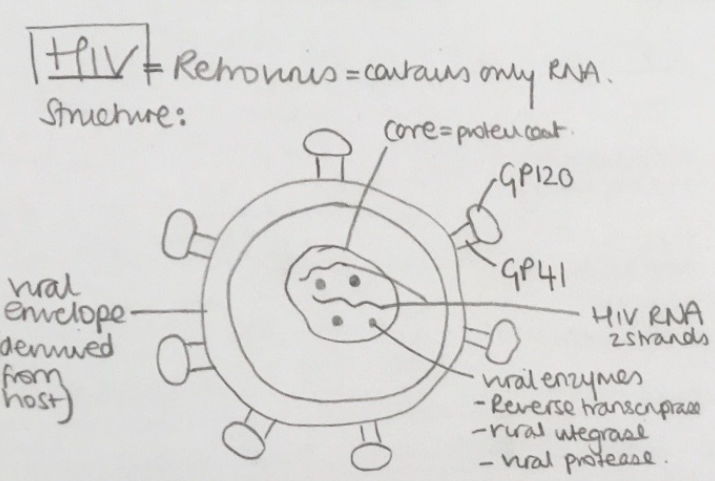 HIV = Retrovirus = contains only RNA.
Structure:
core = protein coat.
GP120
GP41
viral
envelope
derived
from
host)
HIV RNA
2 strands
viral enzymes
- Reverse transcriptase
- viral integrase
- viral protease.